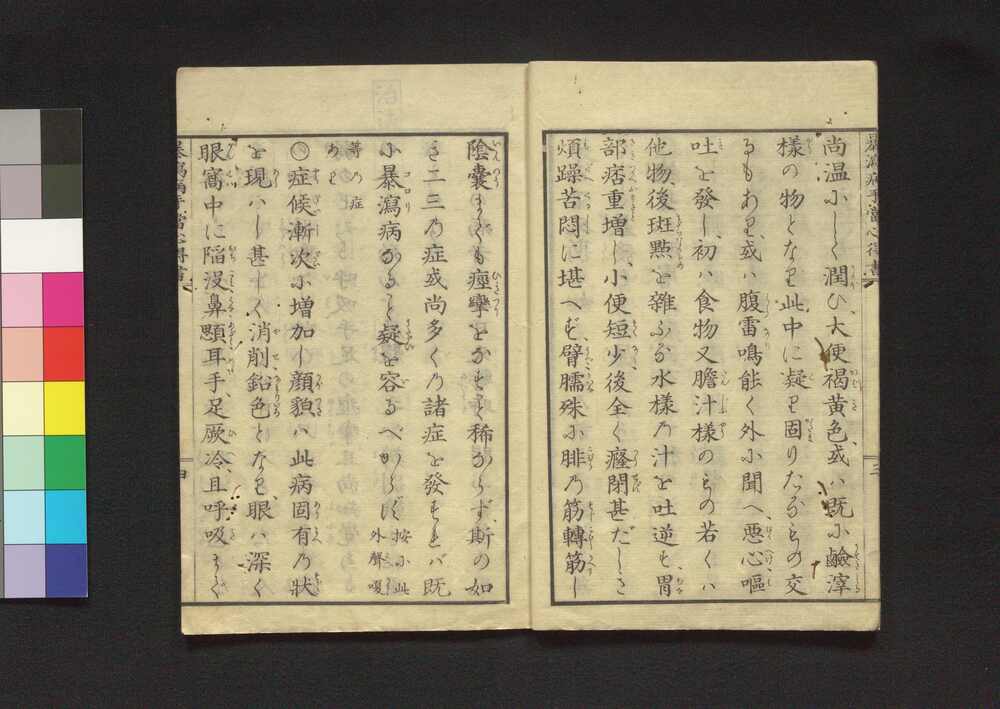 尚温にして潤ひ、大便褐黄色或ハ既に鹼滓
様の物となり此中に凝り固りたるものの交
るもあり、或ハ腹雷鳴能く外に聞へ、悪心嘔
吐を發し、初ハ食物又膽汁様のもの若くハ
他物、後斑㸃を雜ふる水様の汁を吐逆し胃
部痞重増し小便短少後全く癃閉甚だしき
煩躁苦悶に堪へず、臂臑殊に腓の筋轉筋し
陰嚢までも痙攣をなすこと稀ならず、斯の如
き二三の症或尚多くの諸症を發すれバ既
に暴瀉病なること疑を容るべからず 按に此外聲嗄
等の症あり
〇症候漸次に増加し顔貌ハ此病固有の状
を現ハし甚しく消削鉛色となり、眼ハ深く
眼窩中に陥没鼻顋耳手、足厥冷、且呼吸まで
暴瀉病手當心得書
三
暴瀉病手當心得書
四